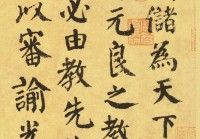 儲為天下
元良之教
必由教先
以審諭